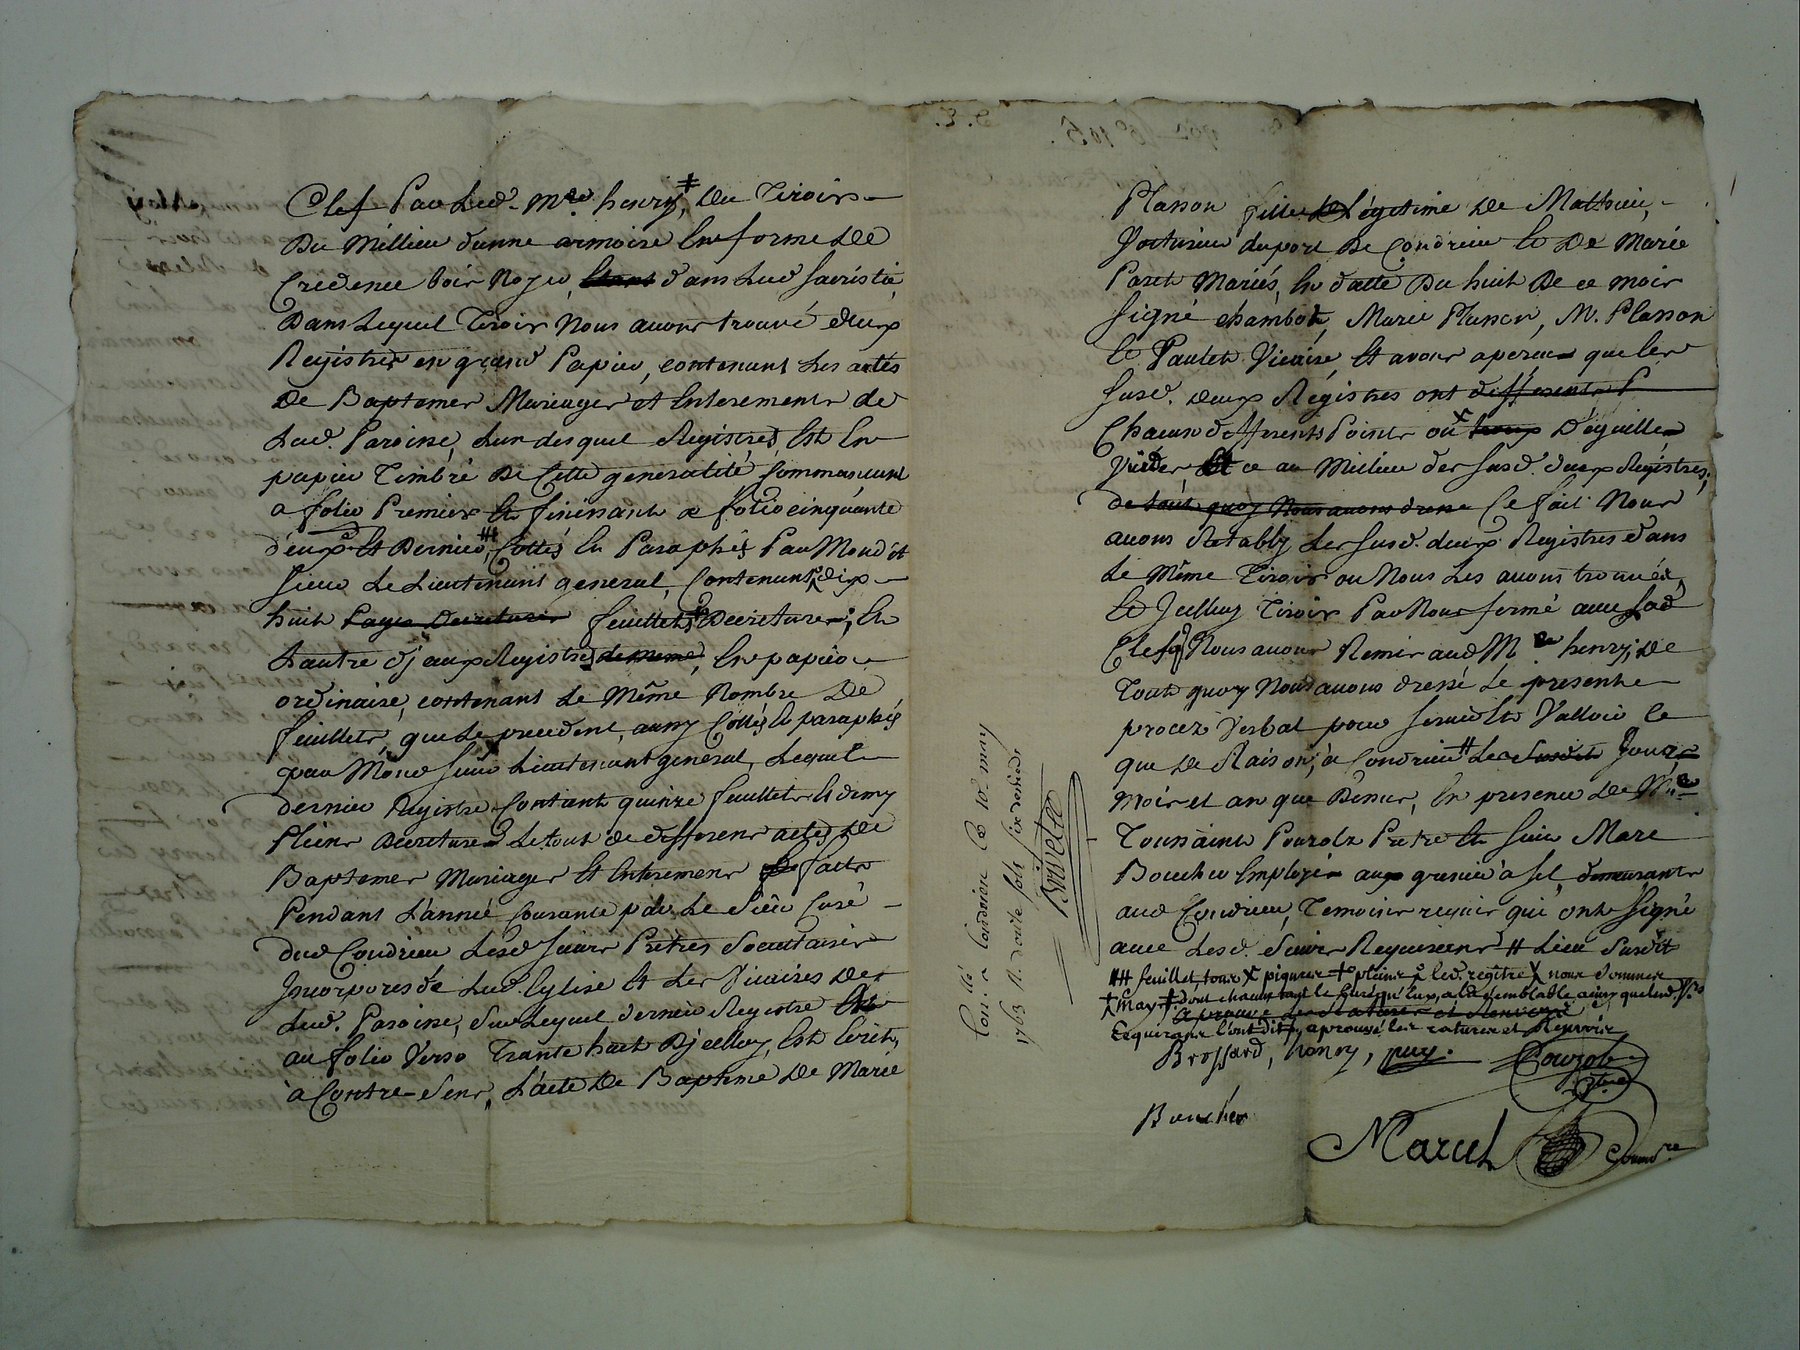 Clef Par Led. Mre. henry ǂ, Du Tiroir
Du Millieu d'unne armoire En forme De
Crédence bois Noyer, Etant dans Lad Sacristie,
Dans Lequel Tiroir Nous avons trouvé deux
Registres en grand Papier, contenant Les actes
De Baptemes Mariages et Enterements de
Lad. Paroisse, L'un desquel Registres Est En
papier Timbré De Cette generalité Commançant
a folio Premier Et finissant a folio cinquante
deux Et Dernier, Cottés Et Paraphés Par Mondit
Sieur Le Lieutenant general, Contenant dix
huit Pages Decriture feuillets Decriture; Et
L'autre Dj aux Registres de meme, En papier
ordinaire, contenant Le Même Nombre De
feuillets, que Le precedent, aussy Cottés Et paraphés
par Mond Sieur Lieutenant general, Lequel
dernier Registre Contient quinze feuillets Et demy
Pleins Decriture Le tout de differens actes De
Baptemes Mariages Et Enteremens faits
Pendant L'année Courante par Le Sieur Curé
dud Condrieu Lesd Sieurs Pretres Societaires
Incorporés de Lad. Eglise Et Les Vicaires De
Lad. Paroisse, Sur Lequel dernier Registre Et
au folio Verso Trante huit Dj celluy, Est Ecrit,
à Contre-Sens, L'acte De Baptême De Marie
Plasson fille Légitime De Mathieu,
Voiturier du port De Condrieu Et De Marie
Paret Mariés, En datte Du huit De ce mois
Signé Chambot, Marie Plasson, M. Plasson
Et Paulet Vicaire, Et avons aperçu que Les
Susd. deux Régistres ont differents P
Chacun differents Points ou trous D'éguille
Vuides, Et ce au Millieu des Susd. deux Registres,
de tout quoy Nous avons dressé Ce fait Nous
avons Retably Les Susd. deux Registres dans
Le Même Tiroir ou Nous Les avons trouvés,
Et Jcelluy Tiroir Par Nous fermé avec Lad
Clef q. Nous avons Remis aud Mre henry, De
Tout quoy Nous avons dressé Le present
procez Verbal pour Servir Et Valloir Ce
que De Raison, à Condrieu # Les Susdit Jour
Mois et an que Dessus, En presence De Mre
Toussaint Pouzolz Pretre Et Sieur Marc
Boucher Employé aux grenier à Sel, demeurants
aud Condrieu, Temoins requis qui ont Signé
avec Lesd. Sieurs Requerens # Lieu Susdit
feuillet, tous X piqueure + pleins Led. registre X nous Sommes
approuvé Les Ratures et Renvois
Requerans L'ont dit, aprouvé Les ratures et Renvois
Brossard, henry, puy. Pouzols
ptre
Boucher
Marcel Commre
Conlé
Con. a Condrieu Le 10. may
1763 R. douze sols six deniers
Brivette